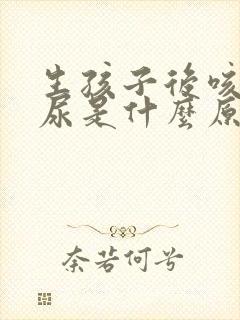 生孩子後咳
尿是什麼原
奈若何兮